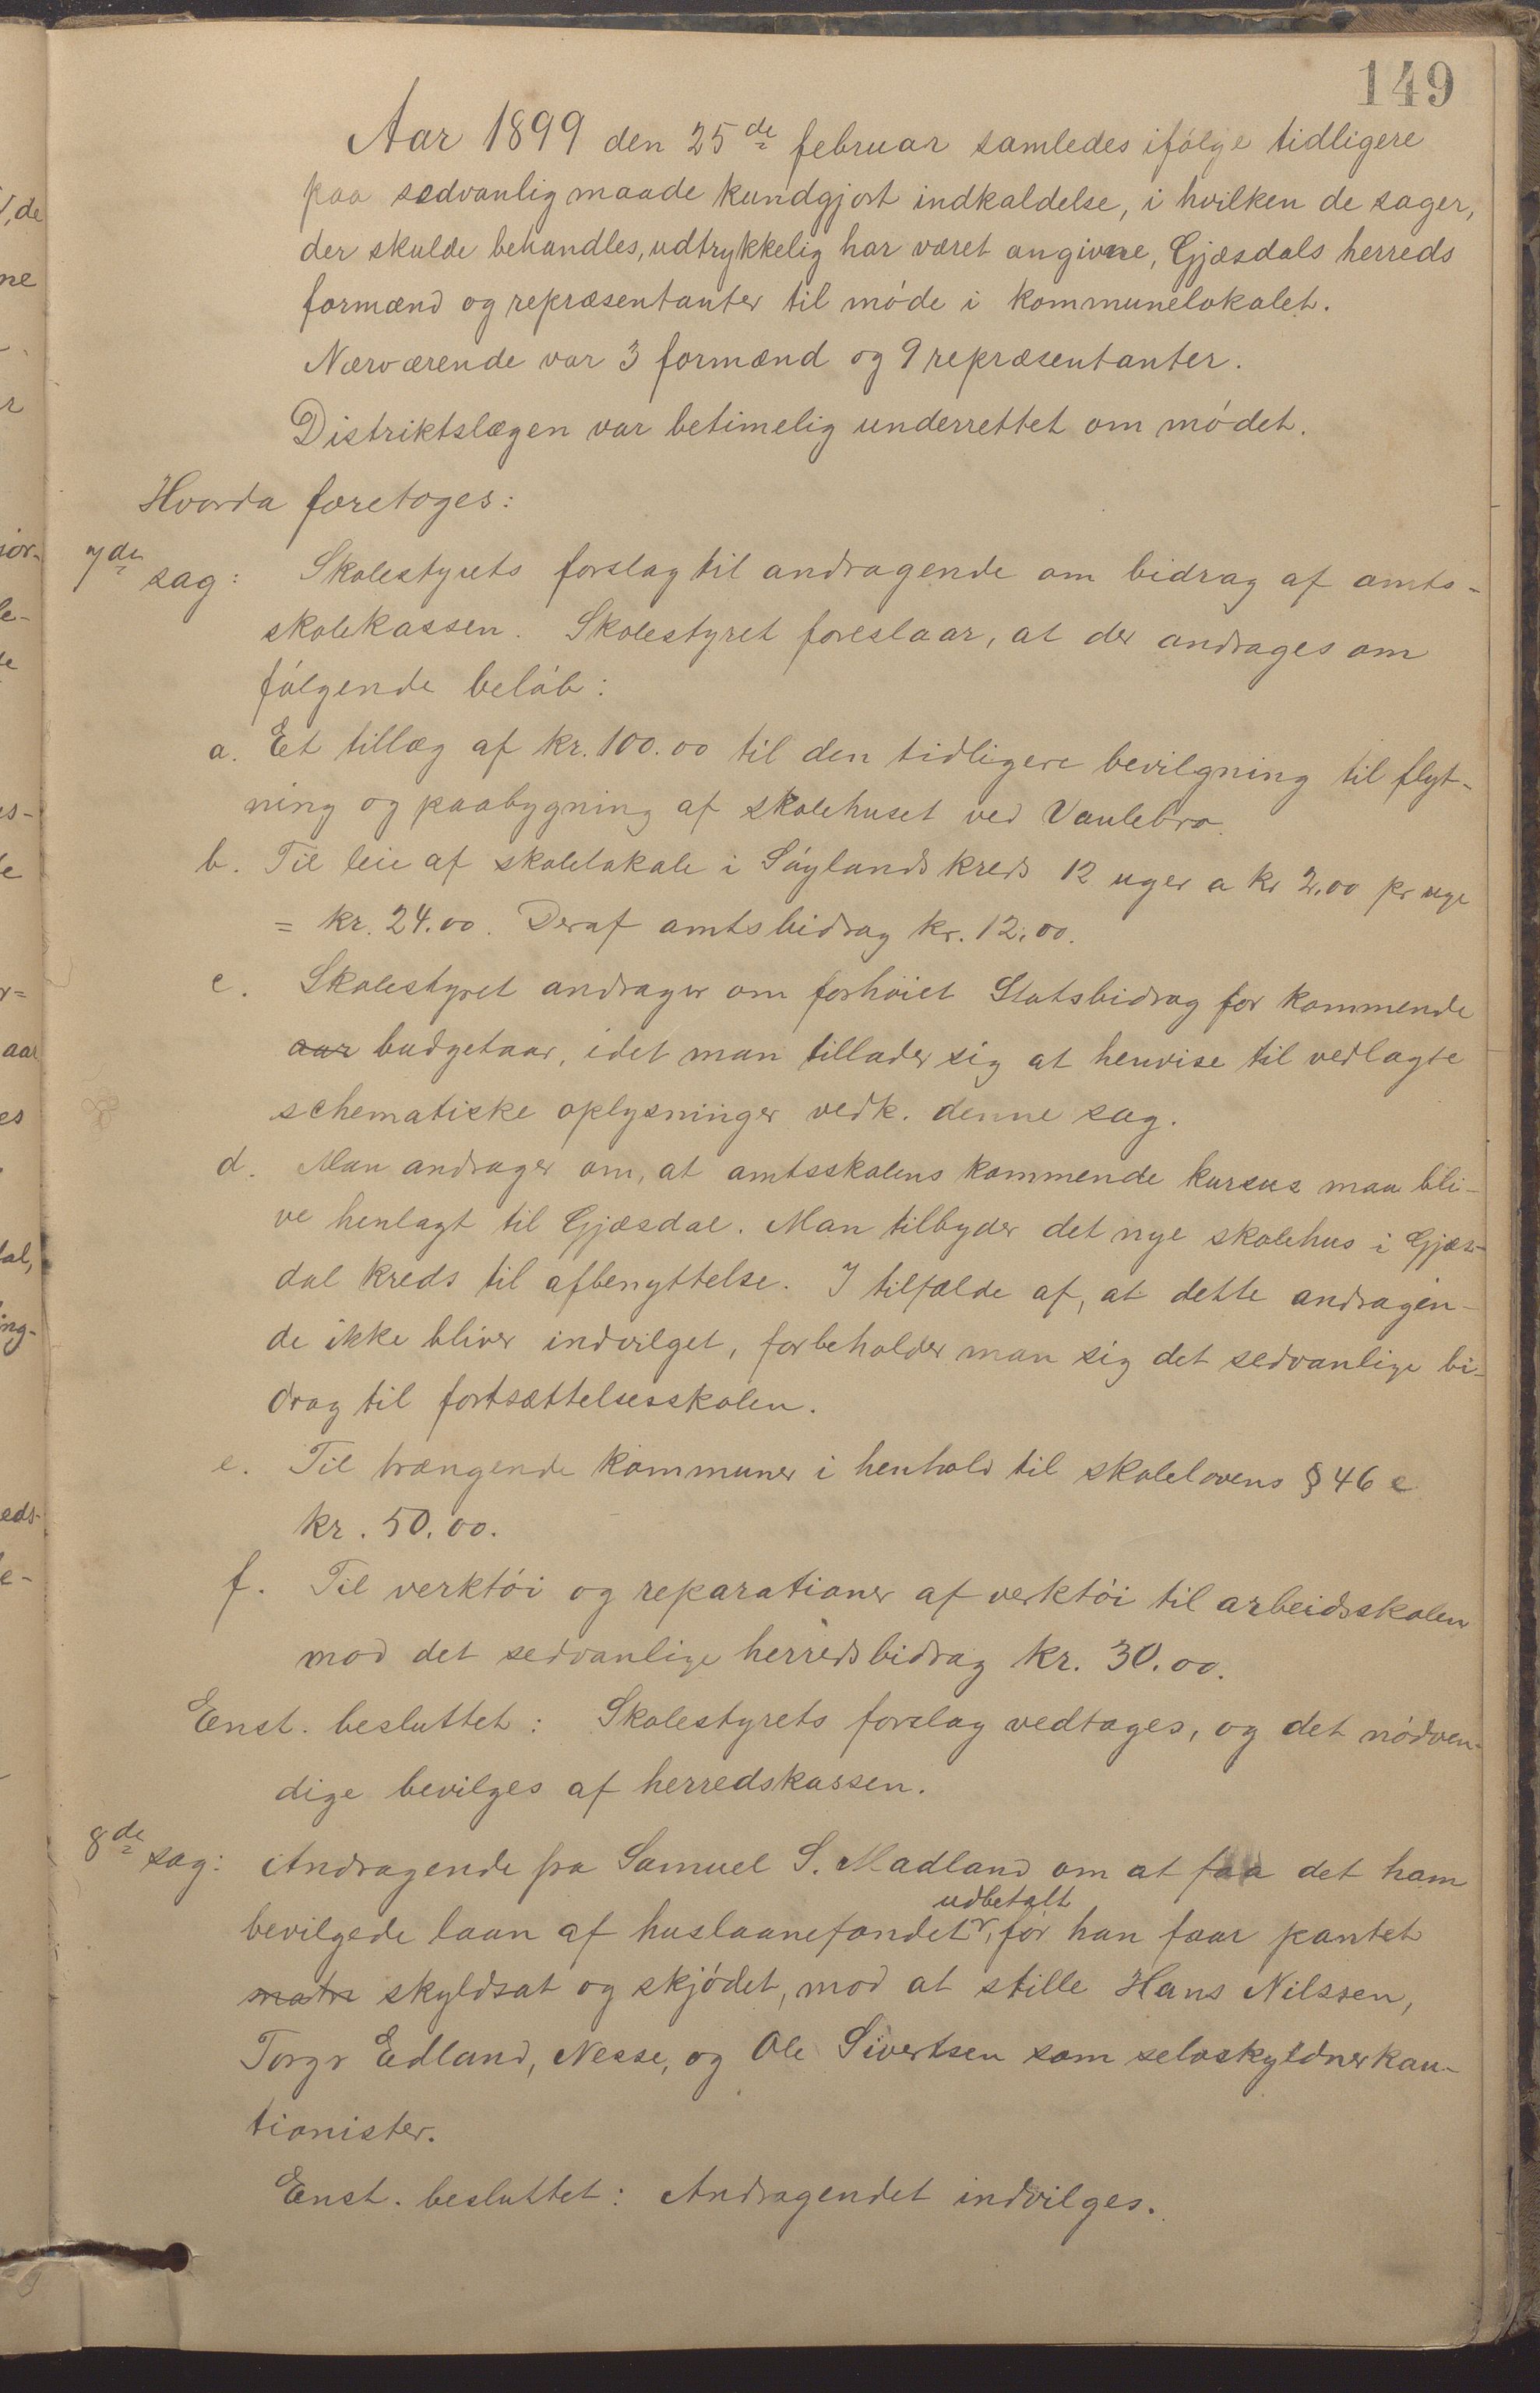 149
Aar 1899 den 25de februar samledes ifølge tidligere
paa sedvanlig maade kundgjort indkaldelse, i hvilken de sager,
der skulde behandles, udtrykkelig har været angivne, Gjæsdals herreds
formænd og repræsentanter til møde i kommunelokalet.
Nærværende var 3 formænd og 9 repræsentanter.
Distriktslægen var betimelig underrettet om mødet.
Hvorda foretoges:
7de sag: Skolestyrets forslag til andragende om bidrag af amts-
skolekassen. Skolestyret foreslaar, at der andrages om
følgende beløb:
a. Et tillæg af kr. 100.00 til den tidligere bevilgning til flyt-
ning og paabygning af skolehuset ved Vaulebro.
b. Til leie af skolelokale i Søylands kreds 12 uger a kr 2,00 pr uge
= kr. 24.00. Deraf amtsbidrag kr. 12.00.
c. Skolestyret andrager om forhøiet Statsbidrag for kommende
aar budgetaar, idet man tillader sig at henvise til vedlagte
schematiske oplysninger vedk. denne sag.
d. Man andrager om, at amtsskolens kommende kursus maa bli-
ve henlagt til Gjæsdal. Man tilbyder det nye skolehus i Gjæs-
dal kreds til afbenyttelse. I tilfælde af, at dette andragen-
de ikke bliver indvilget, forbeholder man sig det sedvanlige bi-
drag til fortsættelsesskolen.
e. Til trængende kommuner i henhold til skolelovens § 46 e
kr. 50.00.
f. Til verktøi og reparationer af verktøi til arbeidsskolen
mod det sedvanlige herredsbidrag kr. 30.00.
Enst. besluttet: Skolestyrets forslag vedtages, og det nødven-
dige bevilges af herredskassen.
8de sag: Andragende fra Samuel S. Madland om at faa det ham
udbetalt
bevilgede laan af huslaanefondet, før han faar pantet
matr skyldsat og skjødet, mod at stille Hans Nilssen,
Torgr Edland, Nesse, og Ole Sivertsen som selvskyldnerkau-
tionister.
Enst. besluttet: Andragendet indvilges.